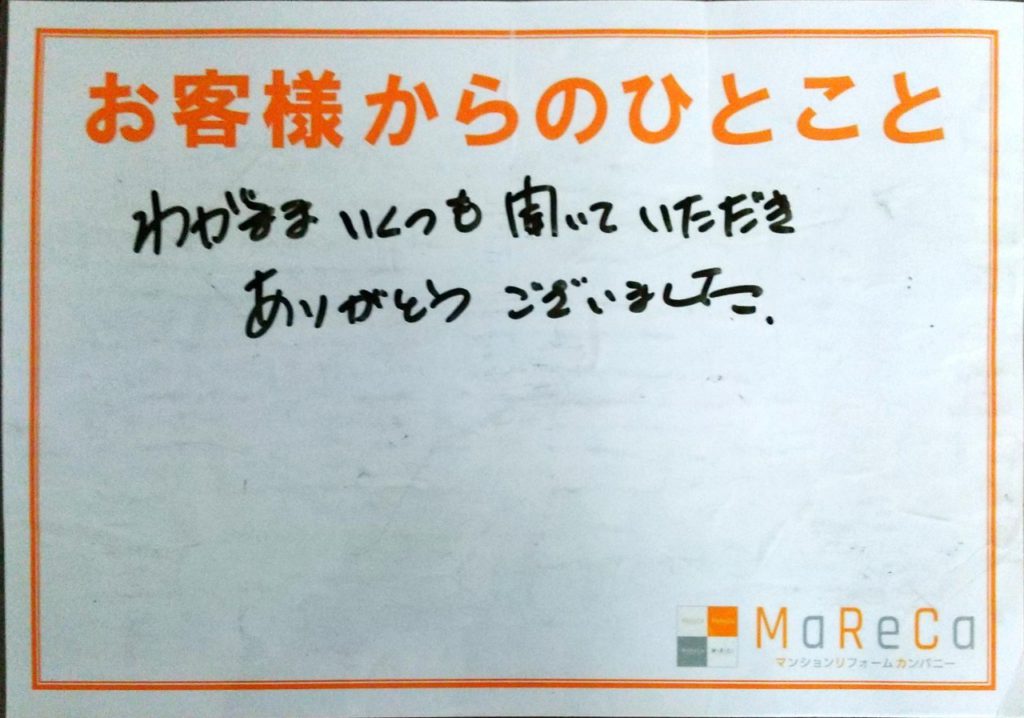 お客様からのひとこと
わがまま いくつも 聞いて いただき
ありがとう ございました.
MaReCa
マンションリフォームカンパニー